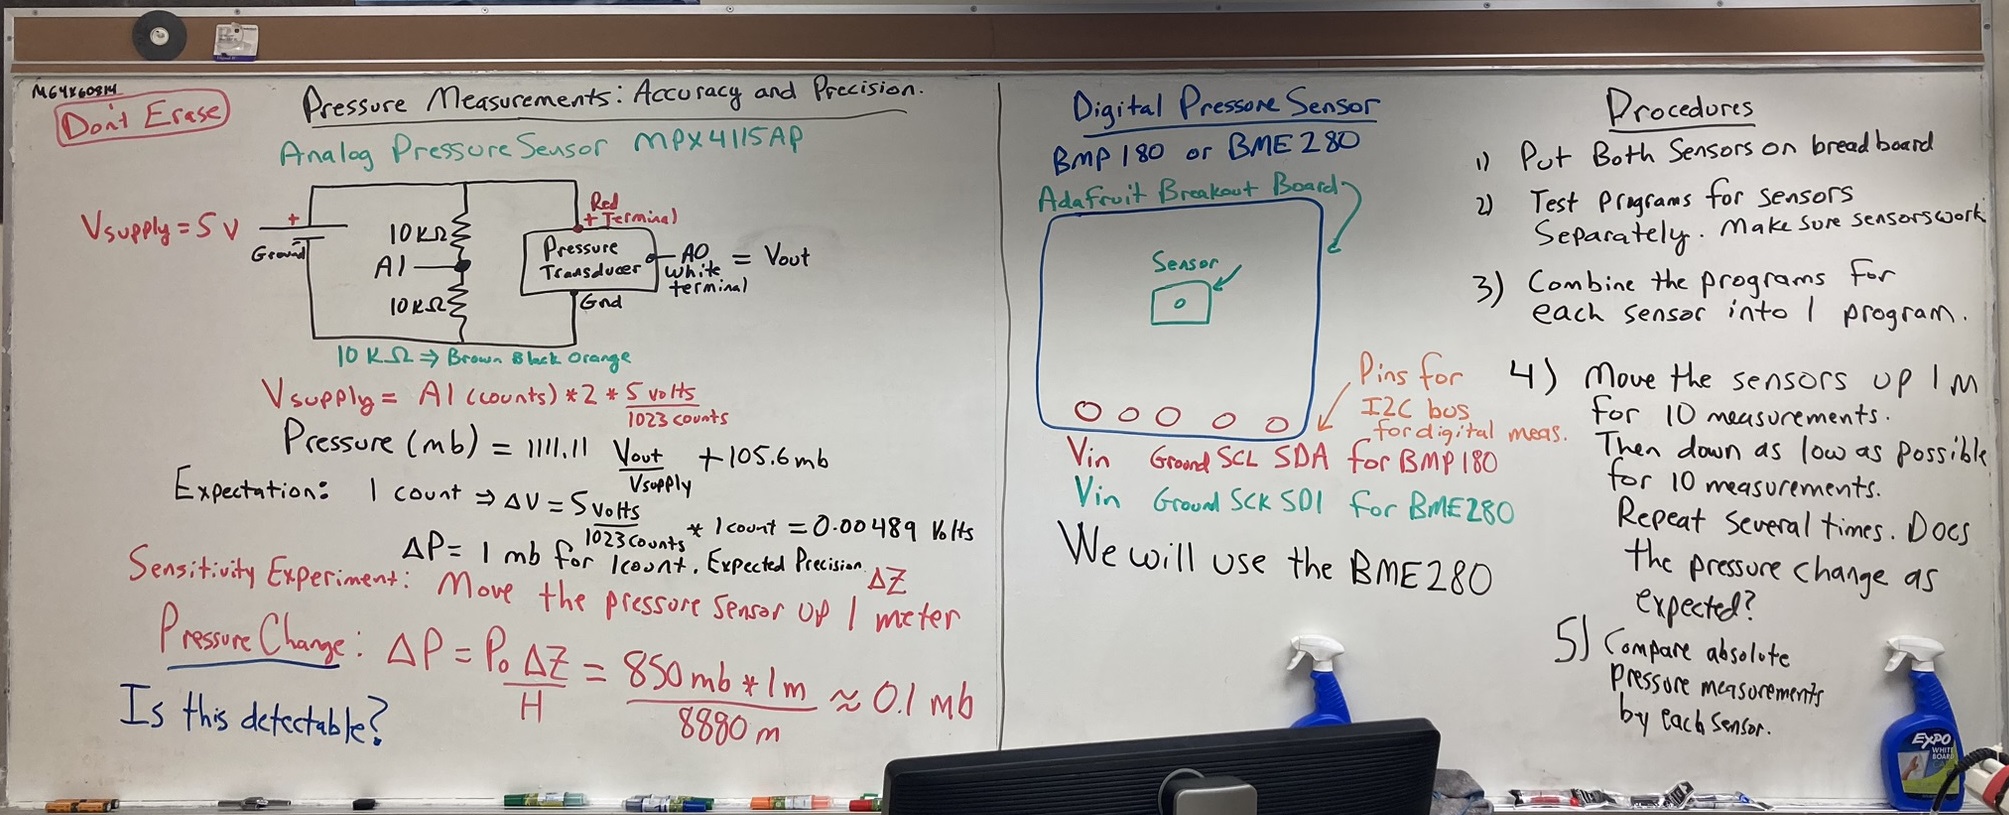 Don't Erase
Pressure Measurements: Accuracy and Precision.
Analog Pressure Sensor MPX4115AP
Vsupply = 5 V
+
Ground
10KΩ
A1
10KΩ
Red
+ Terminal
Pressure
Transducer
A0
white
terminal
= Vout
Gnd
10 KΩ ⇒ Brown Black Orange
Vsupply = A1 (counts) * 2 * 5 volts / 1023 counts
Pressure (mb) = 1111.11 Vout / Vsupply + 105.6 mb
Expectation: 1 count ⇒ ΔV = 5 volts / 1023 counts * 1 count = 0.00489 Volts
ΔP = 1 mb for 1 count. Expected Precision.
Sensitivity Experiment: Move the pressure sensor up 1 meter
ΔZ
Pressure Change: ΔP = P₀ ΔZ / H = 850 mb * 1 m / 8880 m ≈ 0.1 mb
Is this detectable?
Digital Pressure Sensor
BMP 180 or BME 280
Adafruit Breakout Board
Sensor
Pins for
I2C bus
for digital meas.
Vin Ground SCL SDA for BMP180
Vin Ground SCK SDI for BME280
We will use the BME280
Procedures
1) Put Both Sensors on breadboard
2) Test Programs for sensors
Separately. Make sure sensors work
3) Combine the programs for
each sensor into 1 program.
4) Move the sensors up 1 M
for 10 measurements.
Then down as low as possible
for 10 measurements.
Repeat several times. Does
the pressure change as
expected?
5) Compare absolute
pressure measurements
by each sensor.
EXPO
WHITE
BOARD